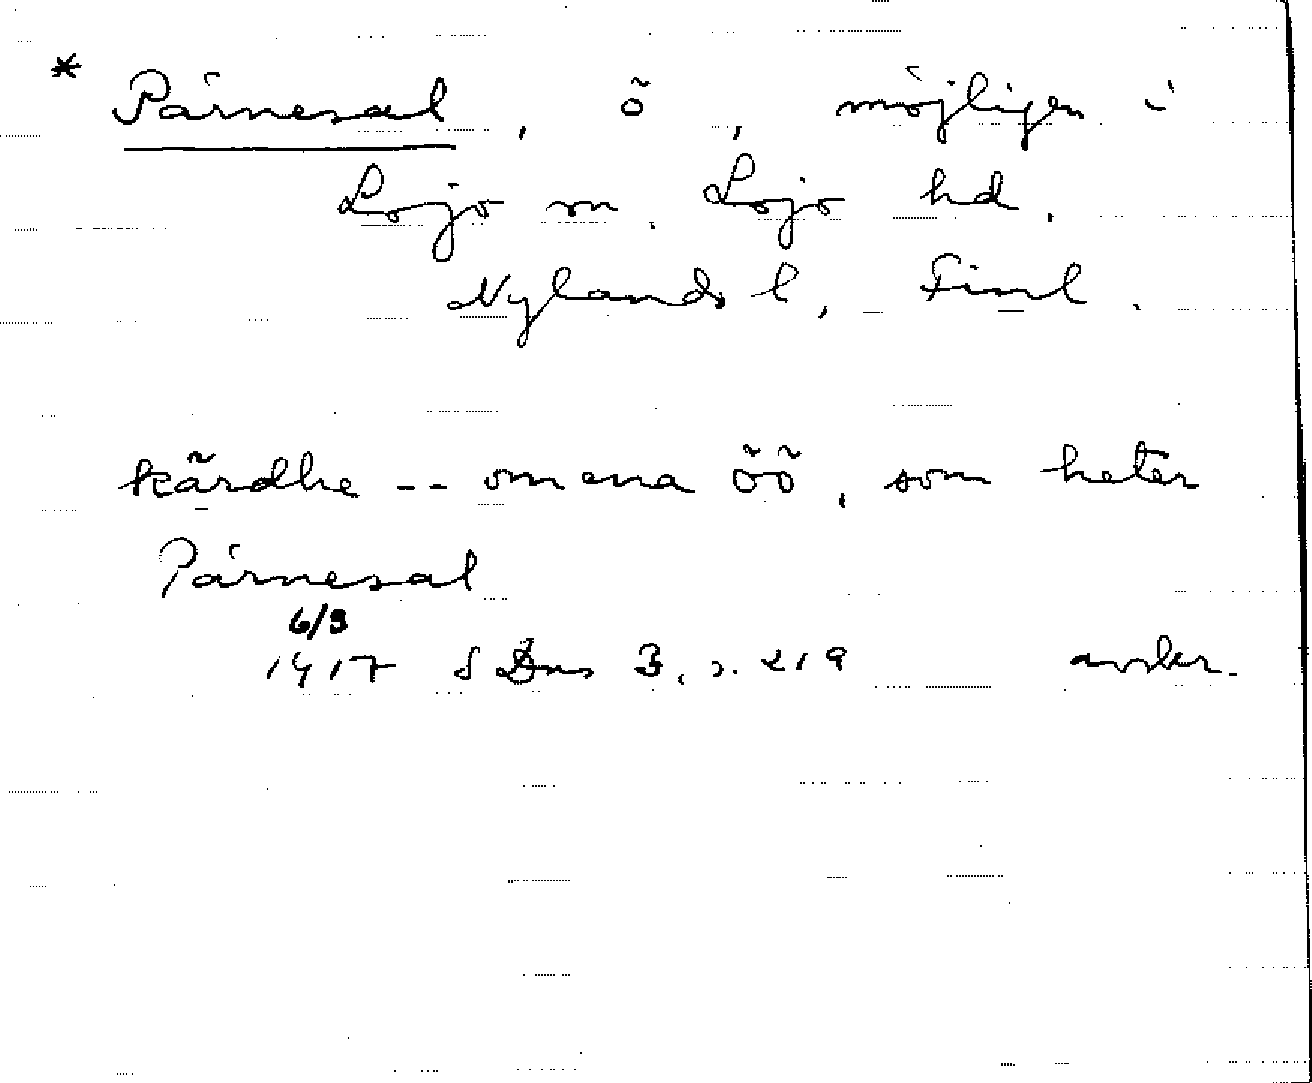 * Pärnesal, ö, möjligen i
Lojo sn. Lojo hd.
Nylands l, Finl.
kärdhe -- om ena öö, som heter
Pärnesal
6/3
1417 SDns 3, s. 219 avskr.